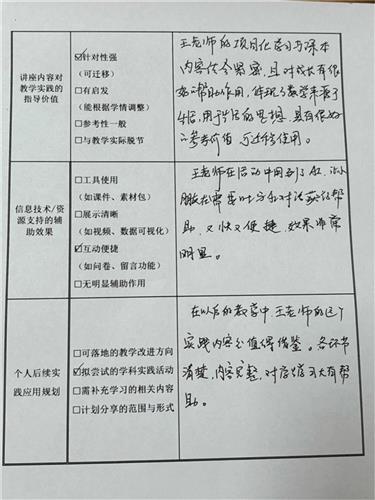 讲座内容对
教学实践的
指导价值
☑针对性强
(可迁移)
□有启发
(能根据学情调整)
□参考性一般
□与教学实际脱节
王老师的项目化学习与课本
内容结合紧密,且对成长有很
好的帮助作用,体现了数学来源于
生活,用于生活的思想,具有很好
的参考价值,可迁移使用。
信息技术/资
源支持的辅
助效果
□工具使用
(如课件、素材包)
□展示清晰
(如视频、数据可视化)
☑互动便捷
(如问卷、留言功能)
□无明显辅助作用
王老师在活动中用到了AI,
助,又快又便捷,效果非常
明显。
个人后续实
践应用规划
□可落地的教学改进方向
☑拟尝试的学科实践活动
□需补充学习的相关内容
□计划分享的范围与形式
在以后的教学中王老师的这个
实践内容很值得借鉴。各环节
清楚,内容完整,对学生有很大帮
助。